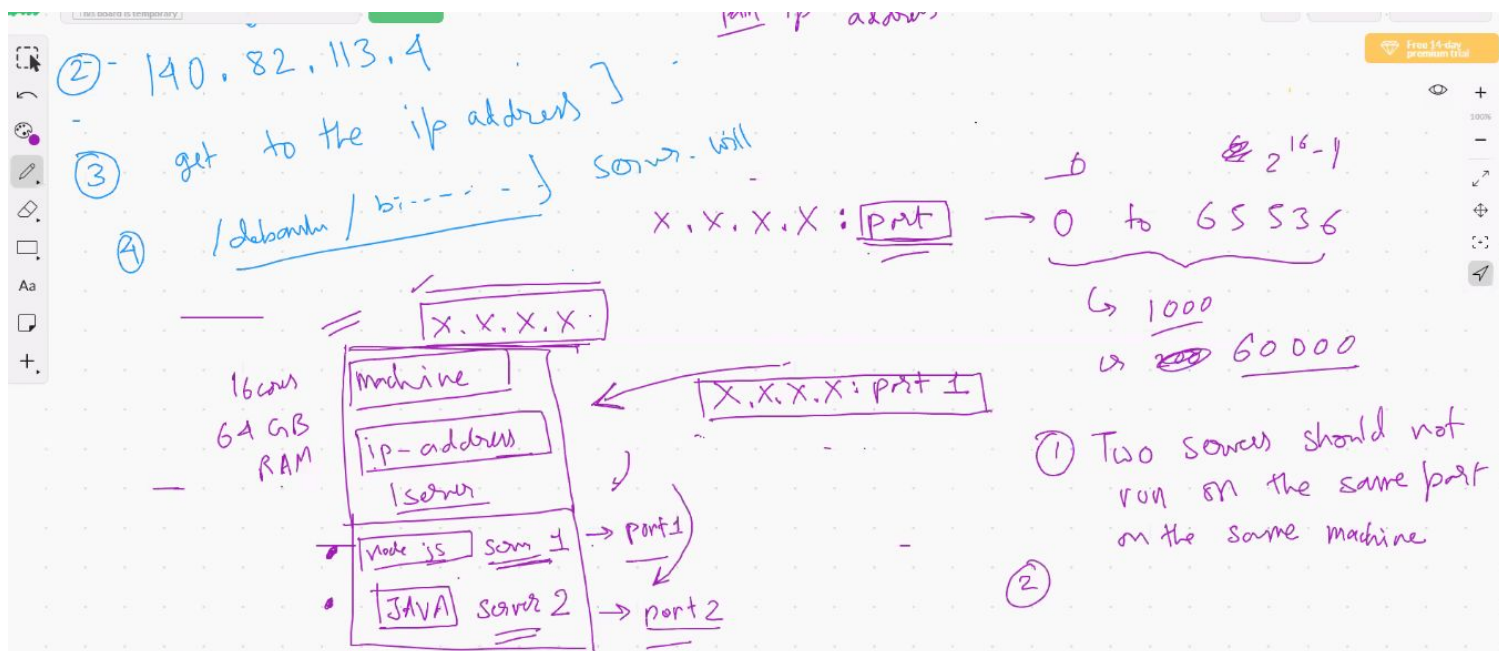 This board is temporary
ip address
Free 14-day
premium trial
② 140.82.113.4
③ get to the ip address ]
④ / bi----- ] server will
100%
Aa
0 2^16-1
X.X.X.X : port → 0 to 65536
↳ 1000
↳ 60000
X.X.X.X
16 cores
64 GB
RAM
machine
ip-address
server
X.X.X.X: port 1
node js 1 → port1
JAVA server 2 → port2
① Two servers should not
run on the same port
on the same machine
②